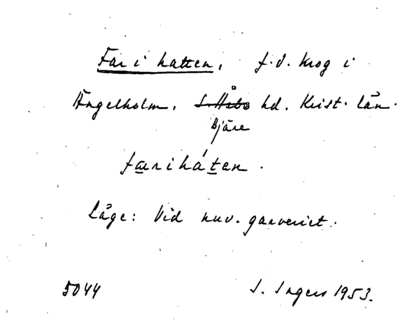 Far i hatten, f.d. krog i
Ängelholm. S. Åsbo hd. Krist. län.
Bjäre
farihatén.
Läge: Vid nuv. garveriet.
5044 I. Ingers 1953.